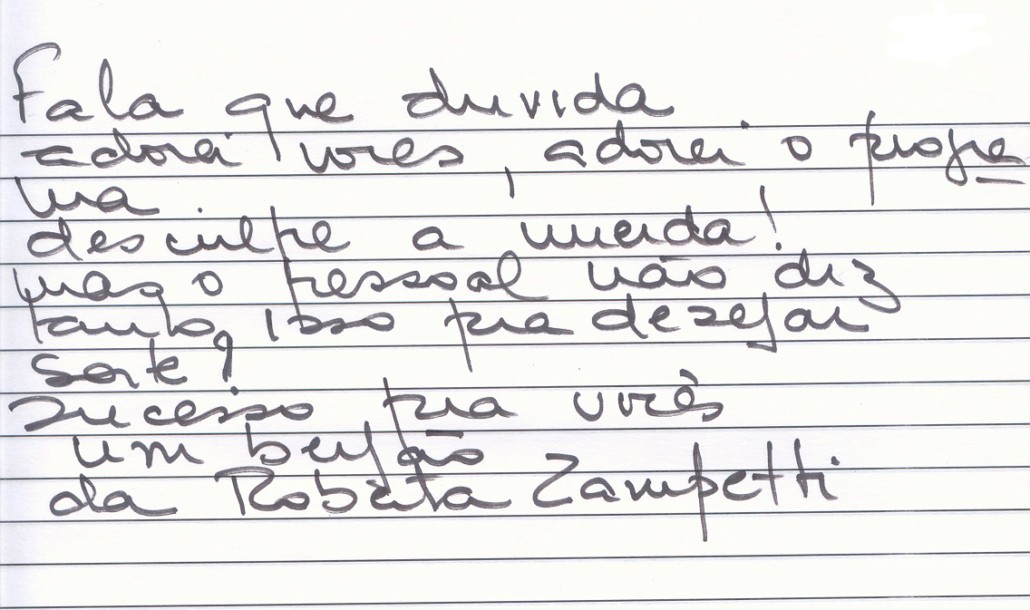 Fala que duvida
adorei vores, adorei o progra
ma
desculpe a merda!
mas o pessoal não diz
tanto, isso pra desejar
sorte?
sucesso pra vocês
um beijão
da Roberta Zampetti